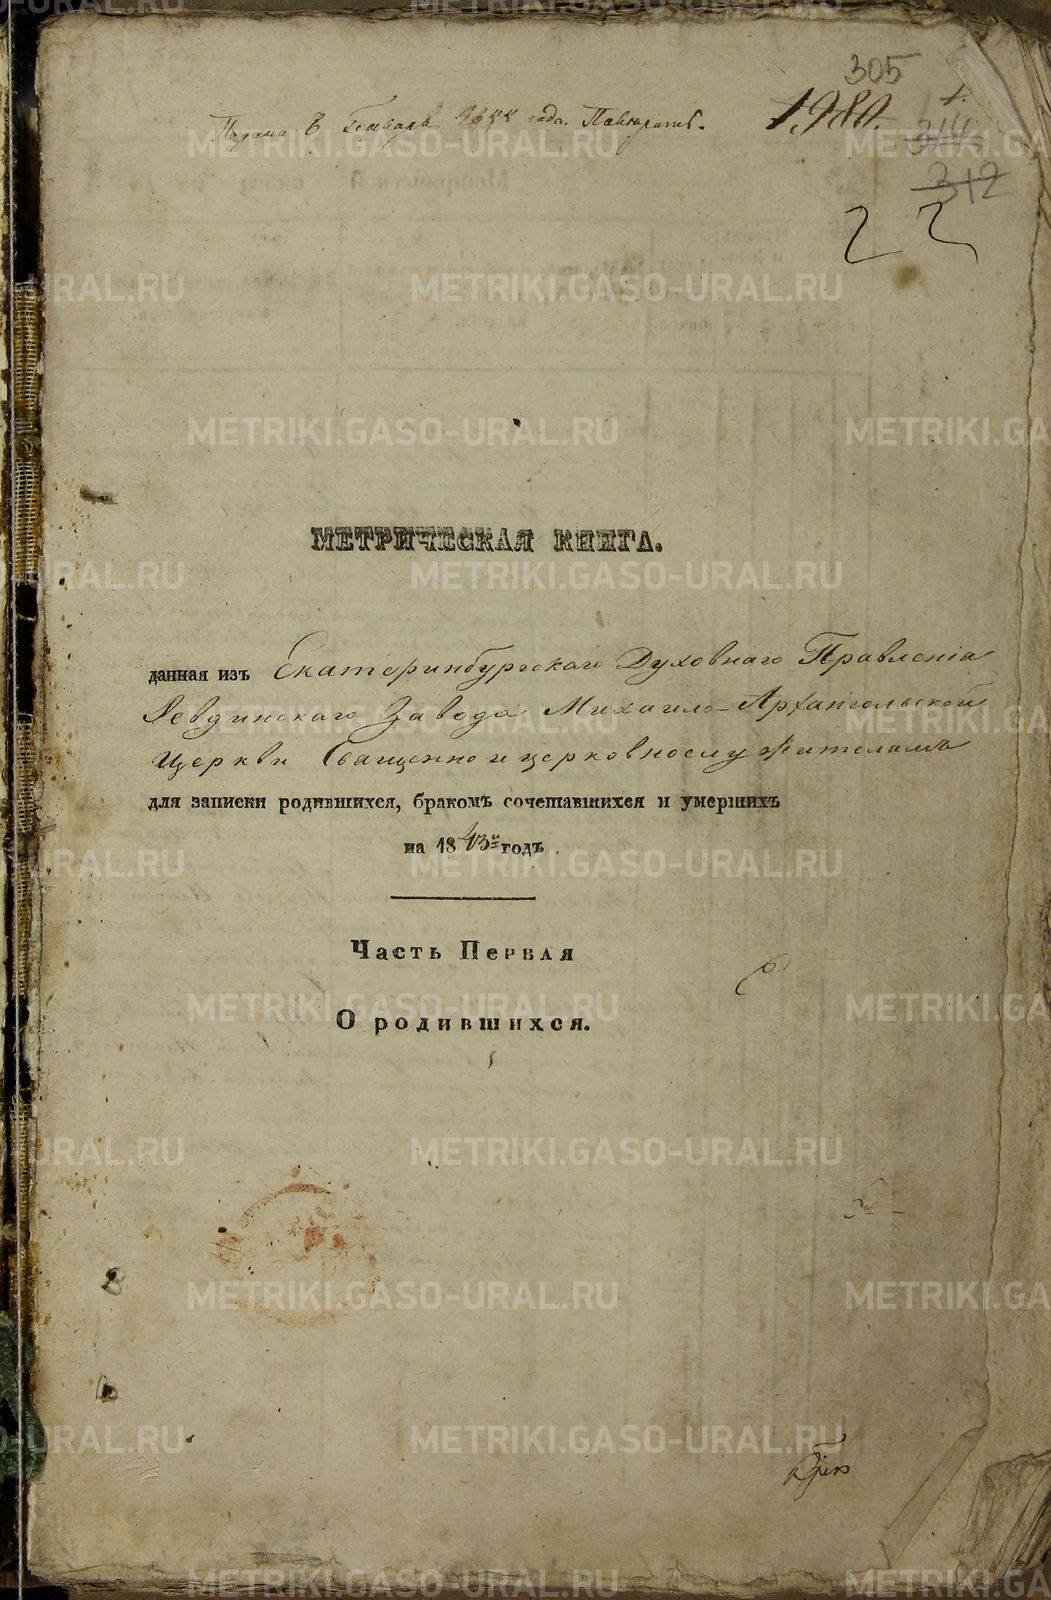 305
1980.
1.
314
312
22
МЕТРИЧЕСКАЯ КНИГА.
данная изъ Екатеринбургскаго Духовнаго Правленія
Ревдинскаго Завода Михаило-Архангельской
Церкви Священно и церковнослужителямъ
для записки родившихся, бракомъ сочетавшихся и умершихъ
на 1843й годъ.
Часть Первая
О родившихся.
METRIKI.GASO-URAL.RU